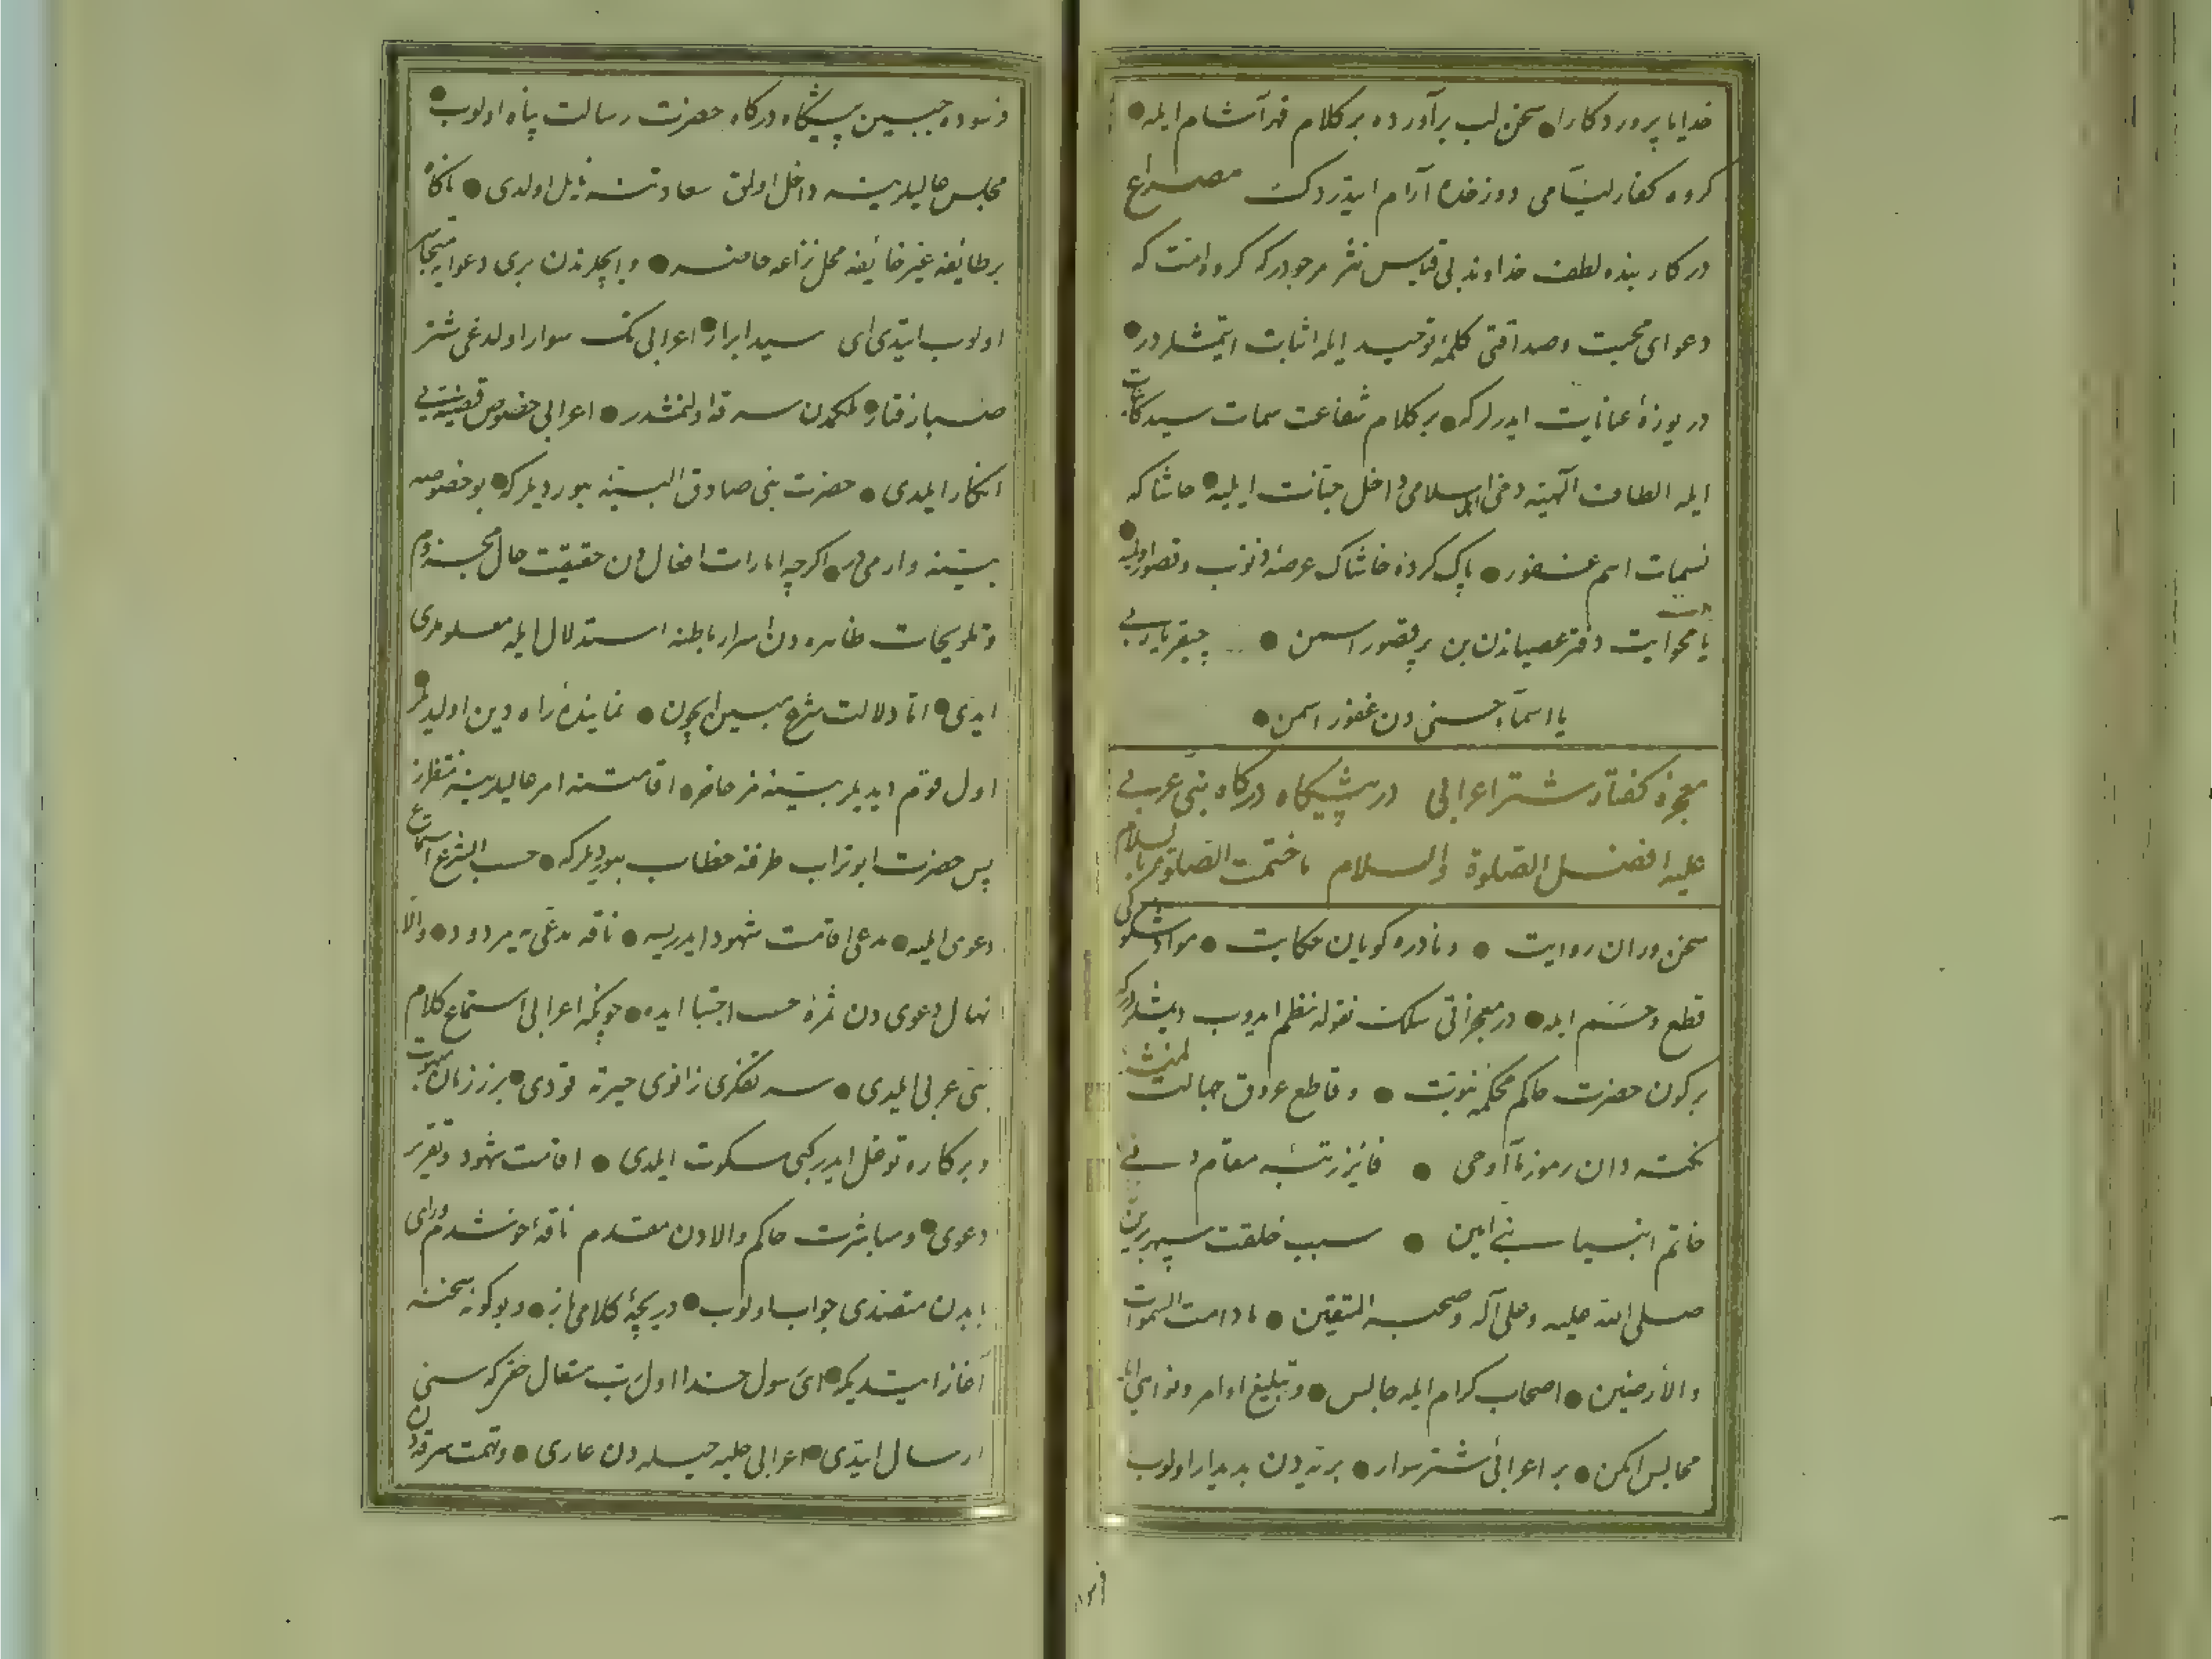 خدايا پروردكارا سخن لب برآورده بر كلام قهرآشام ايله
كروه كفار لئامى دوزخده آرام ايتدردك مصراع
دركار بنده لطف خداوند بى قياس نثر مرجودركه كروه امت كه
دعواى محبت وصداقتى كلمۀ توحيد ايله اثبات ايتمشلردر
دريوزۀ عنايت ايدرلركه بر كلام شفاعت سمات سيد كائنات
ايله الطاف الهيه دخى اهل اسلامى داخل جنات ايليه حاشا كه
نسيمات اسم غفور پاك كردۀ خاشاك عرصۀ ذنوب وقصور اوليه
يا محو ايت دفتر عصياندن بن پر قصور اسمن چيقر يا ربى
يا اسمآء حسنى دن غفور اسمن
معجزۀ كفتار شتر اعرابى در پيشكاه دركاه نبى عربى
عليه افضل الصلوة والسلام ما ختمت الصلوة بالسلام
سخن وران روايت ونادره كويان حكايت مواد شكوكى
قطع وحسم ايله در معجزاتى سلك نقوله نظم ايدوب ديمشلردركه
بركون حضرت حاكم محكمۀ نبوت وقاطع عروق جهالت
نكته دان رموز ما اوحى فائز رتبۀ مقام دنى
خاتم انبيا نبى امين سبب خلقت سپهر برين
صلى الله عليه وعلى آله وصحبه المتقين ما دامت السموات
والأرضين اصحاب كرام ايله جالس وتبليغ اوامر ونواهى
مجالس ايكن بر اعرابئ شتر سوار برته دن بديدار اولوب
فرسوده جبين پيشكاه دركاه حضرت رسالت پناه اولوب
مجلس عاليلرينه داخل اولمق سعادتنه نايل اولدى ناكاه
بر طايفه غير خائفه محل نزاعه حاضر وايچلرندن برى دعوايه
اولوب ايتدى اى سيد ابرار اعرابى نك سوار اولدغى شتر
صبا رفتار ملكمدن سرقه اولنمشدر اعرابى خصوص قضيه يى
انكار ايلدى حضرت نبى صادق البينه بيورديلركه بو خصوصه
بينه وارميدر اكرچه امارات افعال دن حقيقت حال مجزوم
وتلويحات ظاهره دن اسرار باطنه استدلال ايله معلوملرى
ايدى اما دلالت شرع مبين ايچون نمايندۀ راه دين اولديلر
اول قوم ايديلر بينه مز حاضر اقامتنه امر عاليلرينه منتظرز
پس حضرت ابو تراب طرفنه خطاب بيورديلركه حسب الشرع استماع
دعوى ايله مدعى اقامت شهود ايدرسه ناقه مدعى يه مردود والا
نهال دعوى دن ثمرۀ حسد اجتنا ايده چونكه اعرابى استماع كلام
نبى عربى ايلدى سر تفكرى زانوى حيرته قودى بر زمان مبهوت
وبر كاره توغل ايدر كبى سكوت ايلدى اقامت شهود وتقرير
دعوى ومباشرت حاكم والادن مقدم ناقۀ خوشدم وراى
بابدن متصدى جواب اولوب دريچۀ كلامى باز وبو كونه سخنه
آغاز ايتديكه اى رسول خدا اول رب متعال حقيچون كه سنى
ارسال ايتدى اعرابى حليه حيله دن عارى وتهمت سرقه دن